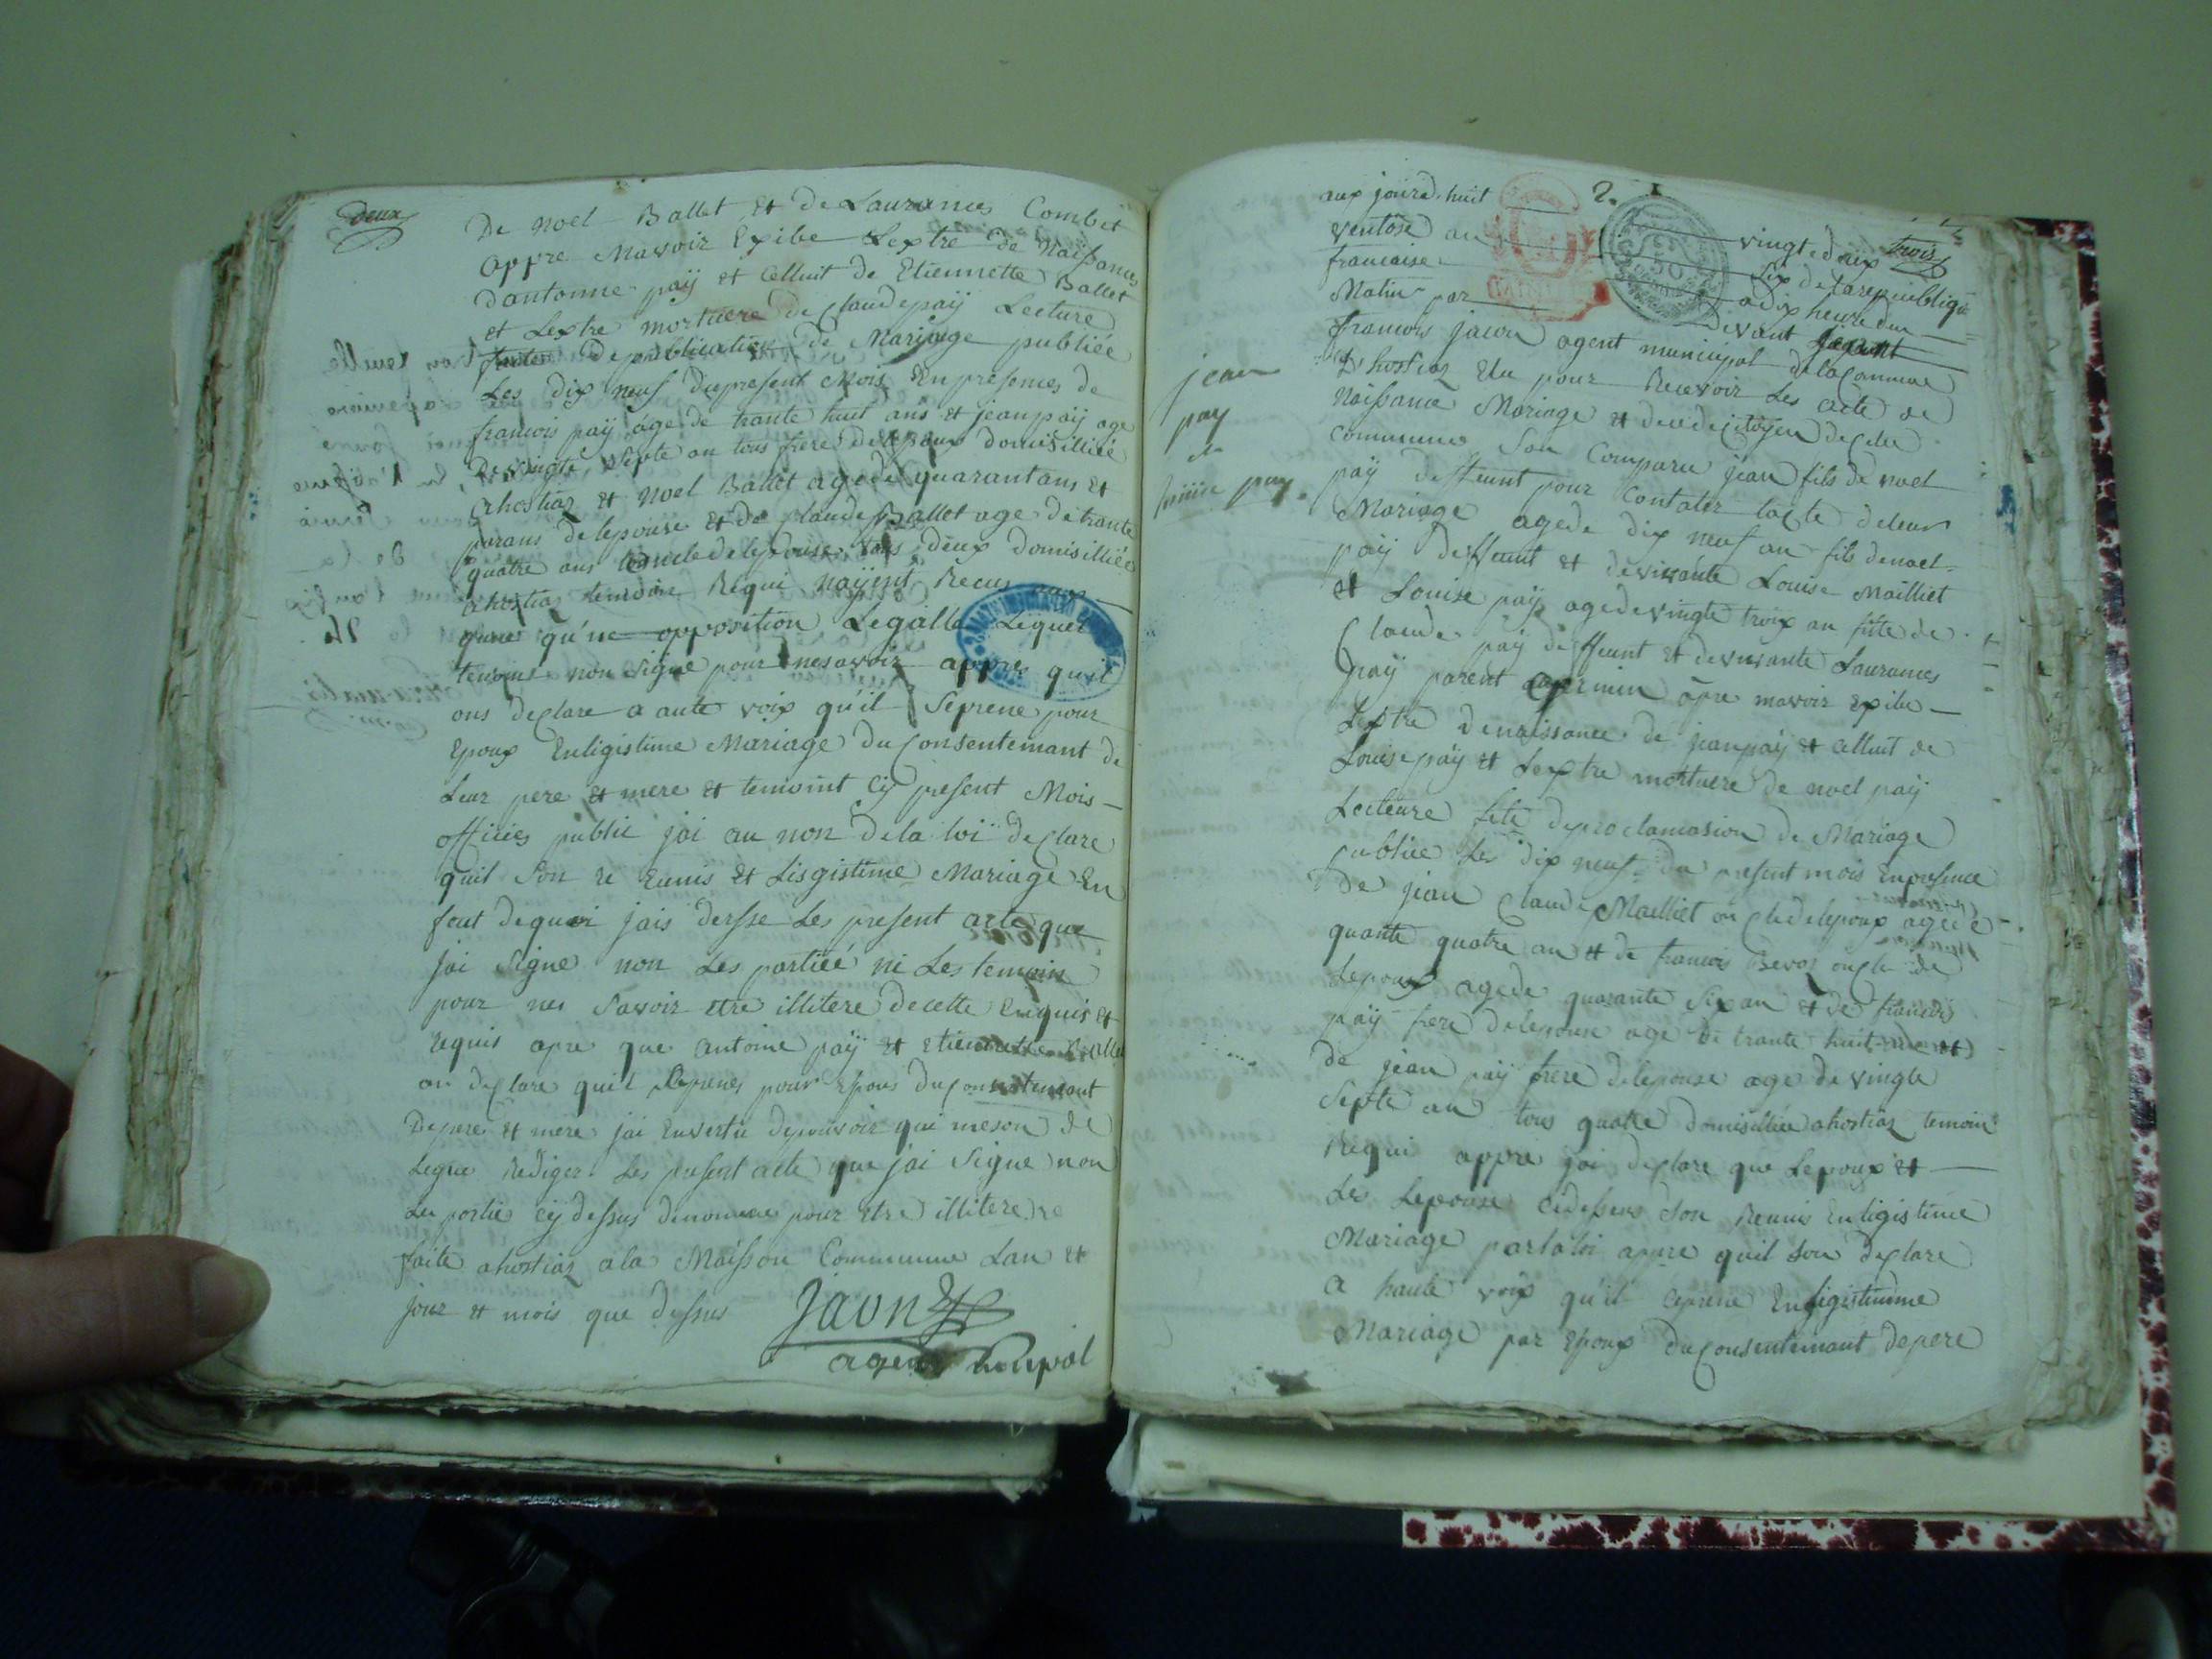 deux
De noel Ballet Et de Laurances Combet
appre Mavoir Exibe Lextre de Naissances
dantoinne paÿ et Celluit de Etiennette Ballet
et Lextre mortuere de Claude paÿ Lecture
faites de publication de Mariage publiée
Les dix neuf du present Mois En presences de
francois paÿ áge de trante huit ans et jean paÿ age
De vingte septe an tous frere de lepoux domisilliée
ahostiaz et noel Ballet age de quarant ans et
parans de lepouse et de Claude Ballet age de trante
quatre ans de lepouse tous deux domisilliée
ahostiaz temoin Requi Recus
qu'ne opposition Legalle Lequel
temoins non Signe pour ne savoir appres quil
ons declare a aute voix qu'il Seprene pour
Epoux Enligistime Mariage du Consentemant de
Leur pere et mere et temoint Cÿ present Mois
officies public jai au non de la loi declare
quil Son re Eunis et Lisgistime Mariage En
fout de quoi jais dersse Les present acte que
jai Signe non Les partiéé ni Les temoin
pour nes Savoir etre illitere decelte Enquis et
requis apre que antoine paÿ et etiennette Ballet
on declare quil Seprenes pour Epous du
Depere et mere jai Envertu depouvoir qui meson de
Legue Rediger Les present acte que jai Signe non
Les partie cÿ dessus denomme pour etre illitere
faite ahostiaz a la Maisson Commune Lan et
jour et mois que dessus Jaon
agent
aux jourd.huit 2.
vingt deux trois
ventose an Six de la republique
francaise a dix heure du
Matin par devant
francois jacon agent municipal de la Commune
D'hostiaz Elu pour Recevoir Les acte de
Naissance Mariage et decede Citoyen de
commune Son Comparu jean fils de noel
paÿ deffeunt pour Contater lacte deleur
Mariage agede dix neuf an fils de noel
paÿ deffeunt et de vivante Louise Mailliet
et Louise paÿ agede vingte troix an fille de
Claude paÿ deffeunt et de vivante Laurances
paÿ parent âpre mavoir Exibe
Lextre de naissance de jean paÿ et Celluit de
Louise paÿ et Lextre mortuere de noel paÿ
Lecteure fete deproclamasion de Mariage
publiée Les dix neuf du present mois Enpresence
De jean Claude Mailliet on cle de lepoux agede
quante quatre an et de francois Bevoz oncle de
Lepoux agede quarante Six an et de francois
paÿ frere de lepouse age de trante huit
de jean paÿ frere de lepouse age de vingte
Septe an tous quatre domisilliée ahostiaz temoin
Requi appre jai declare que Lepoux et
de Lepouse cidessus Son Reunis Enligistime
Mariage par la loi apre quil Son declare
a haute voix qu'il Ceprene Enligistimme
Mariage par Epoux du Consentemant depere
jean
pay
et
pay.